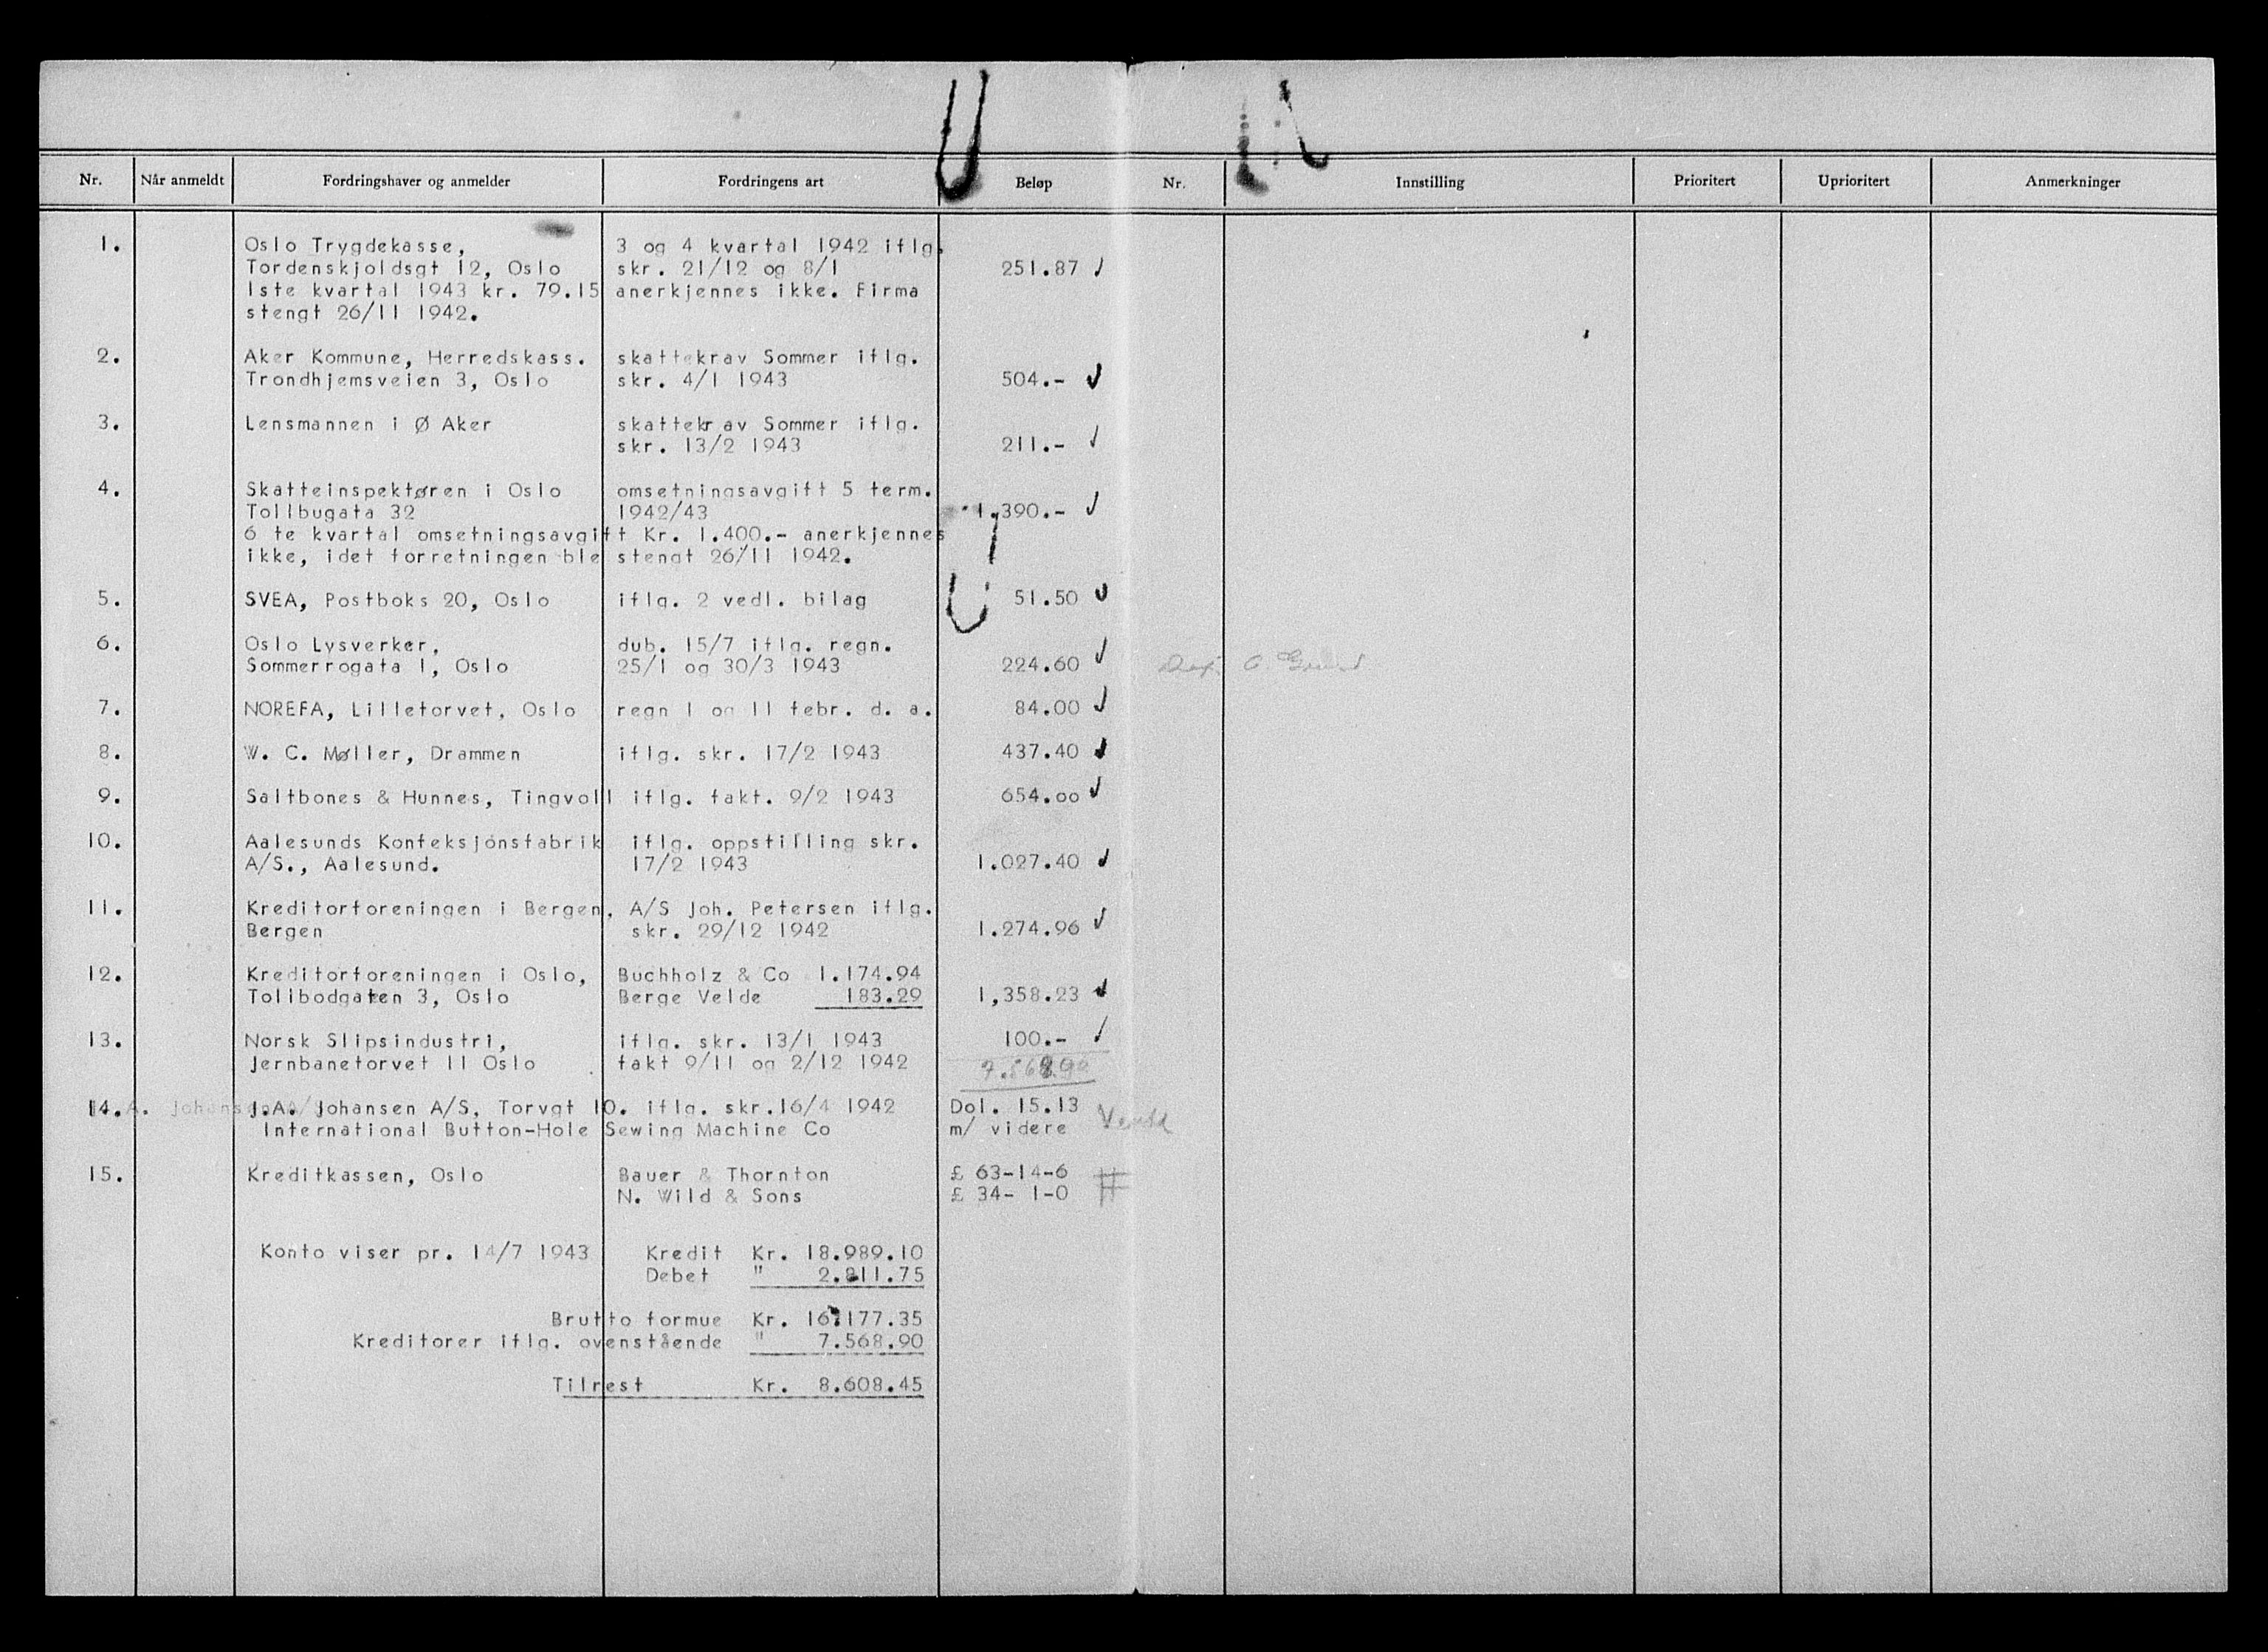 Nr. Når anmeldt Fordringshaver og anmelder Fordringens art Beløp Nr. Innstilling Prioritert Uprioritert Anmerkninger
1. Oslo Trygdekasse, 3 og 4 kvartal 1942 iflg.
Tordenskjoldsgt 12, Oslo skr. 21/12 og 8/1 251.87
1ste kvartal 1943 kr. 79.15 anerkjennes ikke. Firma
stengt 26/11 1942.
2. Aker Kommune, Herredskass. skattekrav Sommer iflg.
Trondhjemsveien 3, Oslo skr. 4/1 1943 504.-
3. Lensmannen i Ø Aker skattekrav Sommer iflg.
skr. 13/2 1943 211.-
4. Skatteinspektøren i Oslo omsetningsavgift 5 term.
Tollbugata 32 1942/43 1.390.-
6 te kvartal omsetningsavgift Kr. 1.400.- anerkjennes
ikke, idet forretningen ble stengt 26/11 1942.
5. SVEA, Postboks 20, Oslo iflg. 2 vedl. bilag 51.50
6. Oslo Lysverker, dub. 15/7 iflg. regn.
Sommerrogata 1, Oslo 25/1 og 30/3 1943 224.60
7. NOREFA, Lilletorvet, Oslo regn 1 og 11 febr. d. a. 84.00
8. W. C. Møller, Drammen iflg. skr. 17/2 1943 437.40
9. Saltbones & Hunnes, Tingvoll iflg. fakt. 9/2 1943 654.oo
10. Aalesunds Konfeksjonsfabrik iflg. oppstilling skr.
A/S., Aalesund. 17/2 1943 1.027.40
11. Kreditorforeningen i Bergen, A/S Joh. Petersen iflg.
Bergen skr. 29/12 1942 1.274.96
12. Kreditorforeningen i Oslo, Buchholz & Co 1.174.94
Tollbodgaten 3, Oslo Berge Velde 183.29 1,358.23
13. Norsk Slipsindustri, iflg. skr. 13/1 1943 100.-
Jernbanetorvet 11 Oslo fakt 9/11 og 2/12 1942
14. J.A. Johansen A/S, Torvgt 10. iflg. skr.16/4 1942 Dol. 15.13
International Button-Hole Sewing Machine Co m/ videre
15. Kreditkassen, Oslo Bauer & Thornton £ 63-14-6
N. Wild & Sons £ 34- 1-0
Konto viser pr. 14/7 1943 Kredit Kr. 18.989.10
Debet " 2.811.75
Brutto formue Kr. 16.177.35
Kreditorer iflg. ovenstående " 7.568.90
Tilrest Kr. 8.608.45